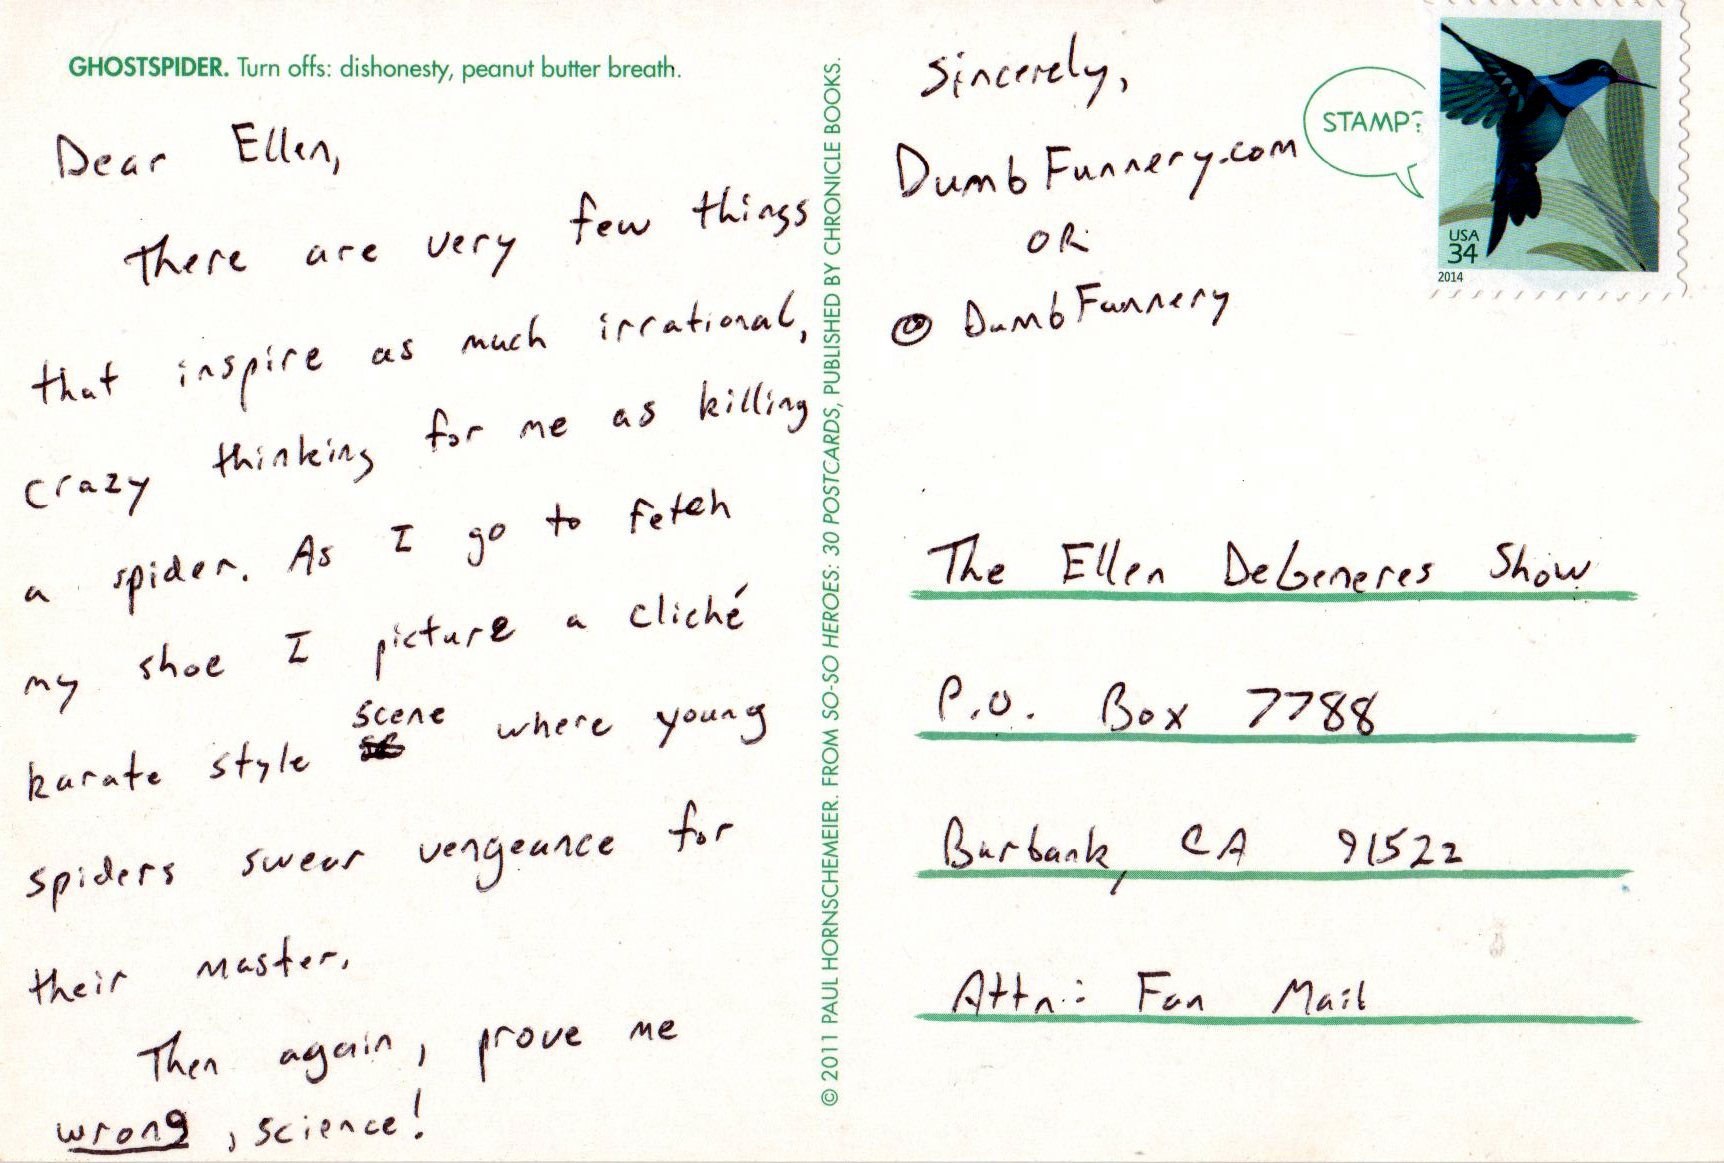 GHOSTSPIDER. Turn offs: dishonesty, peanut butter breath.
Dear Ellen,
there are very few things
that inspire as much irrational,
crazy thinking for me as killing
a spider. As I go to fetch
my shoe I picture a cliché
karate style scene where young
spiders swear vengeance for
their master.
Then again, prove me
wrong, science!
© 2011 PAUL HORNSCHEMEIER. FROM SO-SO HEROES: 30 POSTCARDS, PUBLISHED BY CHRONICLE BOOKS.
Sincerely,
DumbFunnery.com
OR
@DumbFunnery
STAMP?
USA
34
2014
The Ellen DeGeneres Show
P.O. Box 7788
Burbank, CA 91522
Attn: Fan Mail